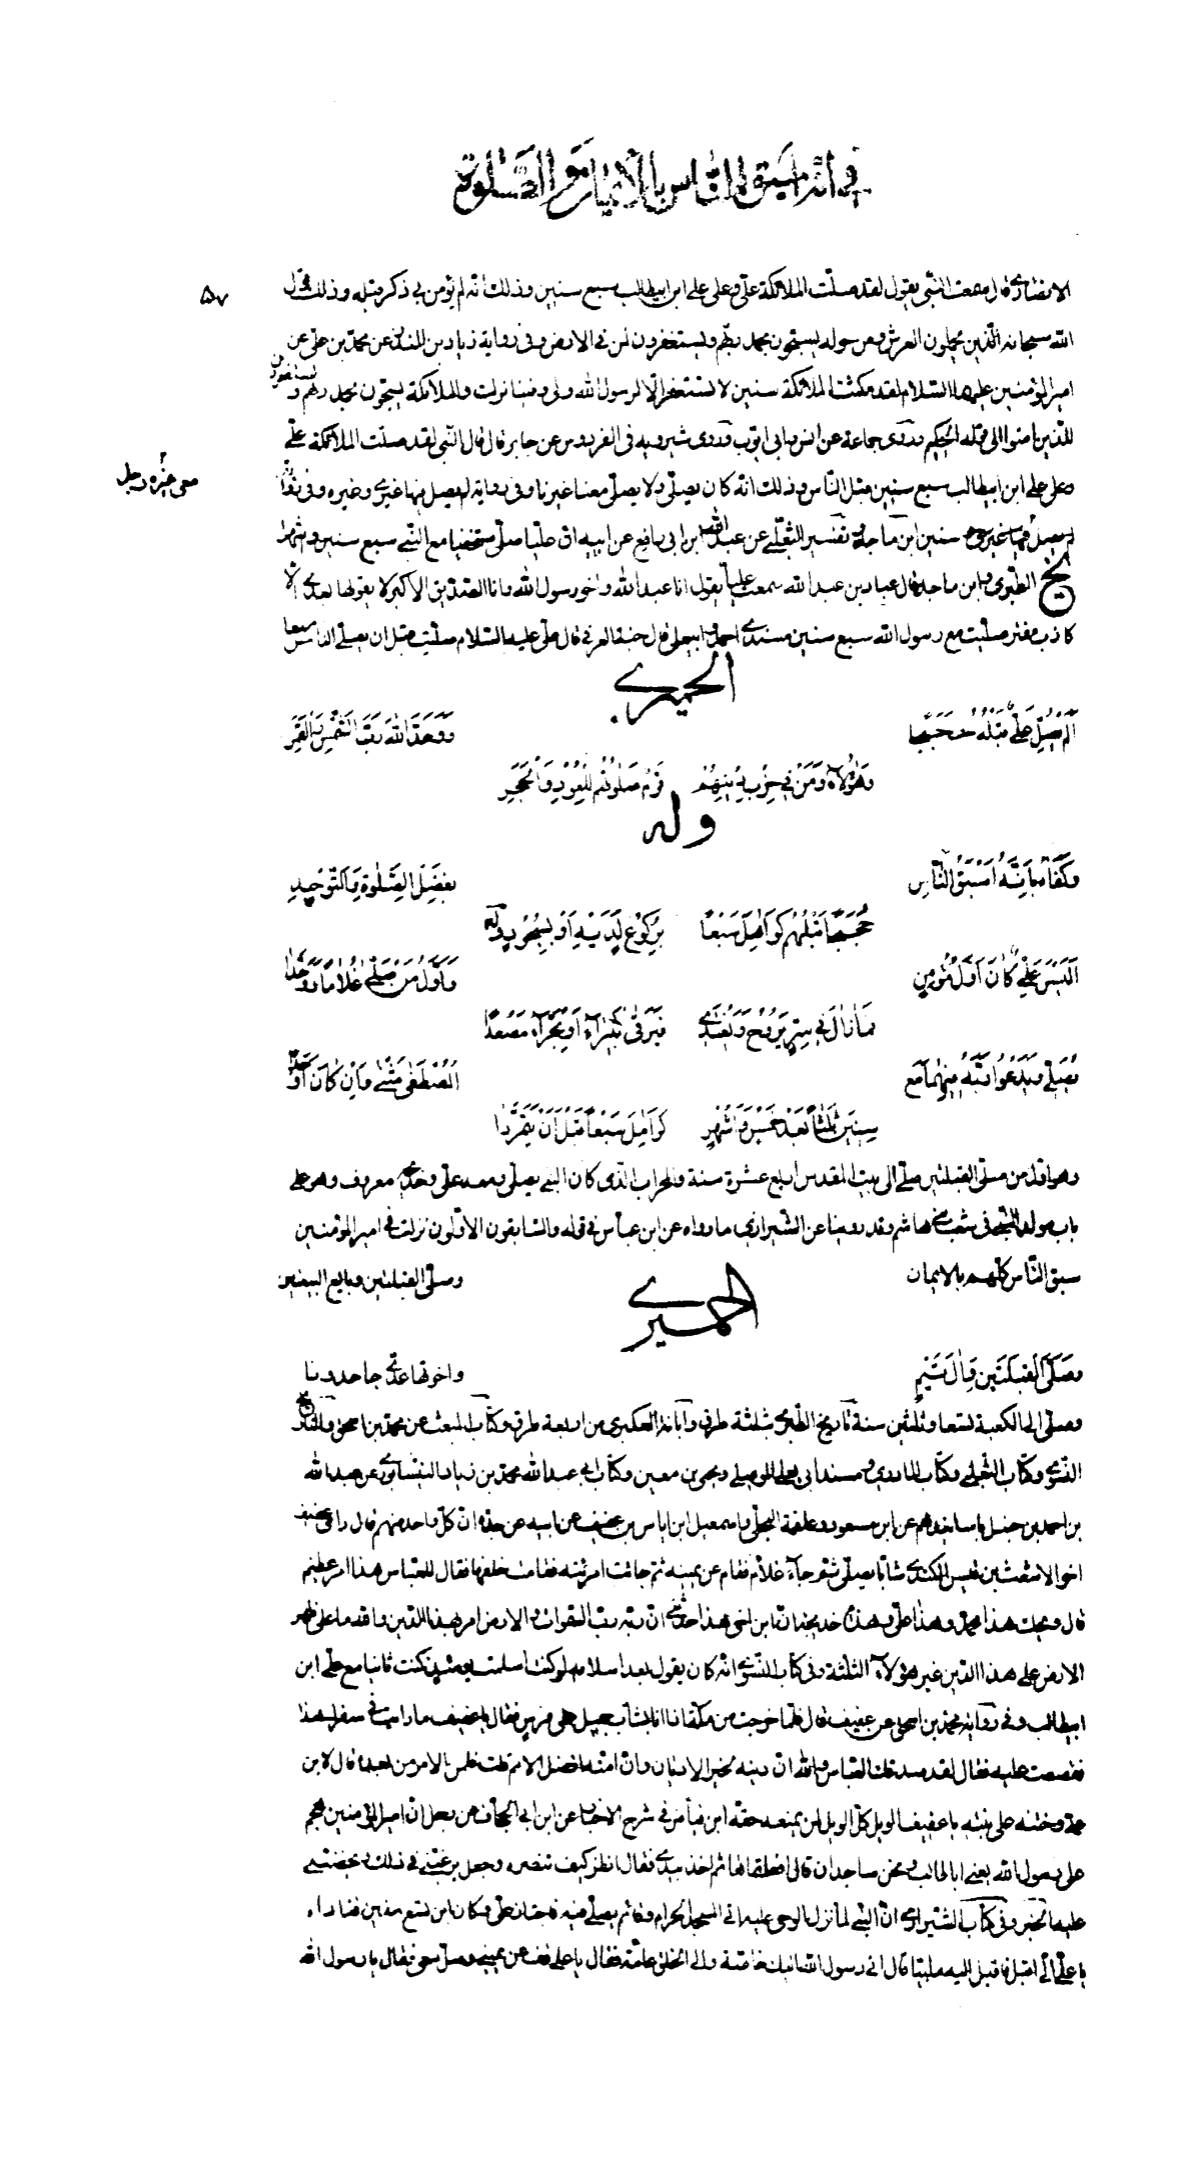 في انه اسبق الناس بالايمان والصلوة
۵۷
الانصاري قال سمعت النبي يقول لقد صلت الملائكة علي وعلى علي ابن ابيطالب سبع سنين وذلك انه لم يؤمن بي ذكر قبله وذلك قول
الله سبحانه الذين يحملون العرش ومن حوله يسبحون بحمد ربهم ويستغفرون لمن في الارض وفي رواية زياد بن المنذر عن محمد بن علي عن
امير المؤمنين عليهما السلام لقد مكثت الملائكة سنين لا تستغفر الا لرسول الله ولي وفينا نزلت والملائكة يسبحون بحمد ربهم ويستغفرون
للذين امنوا الى قوله الحكيم وروى جماعة عن انس وابي ايوب وروى شيرويه في الفردوس عن جابر قال قال النبي لقد صلت الملائكة علي
وعلى علي ابن ابيطالب سبع سنين قبل الناس وذلك انه كان يصلي ولا يصلي معنا غيرنا وفي رواية لم يصل فيها غيري وغيره وفي رواية
لم يصل معي غيره رجل
لم يصل فيها غير سنين ابن ماجة وتفسير الثعلبي عن عبد الله ابن ابي رافع عن ابيه ان عليا صلى مستخفيا مع النبي سبع سنين واشهرا
تاريخ الطبري وابن ماجة قال عباد بن عبد الله سمعت عليا يقول انا عبد الله واخو رسول الله وانا الصديق الاكبر لا يقولها بعدي الا
كاذب مفتر صليت مع رسول الله سبع سنين مسندي احمد وابي يعلى قال حبة العرني قال علي عليه السلام صليت قبل ان يصلي الناس سبعا
الحميري
الم يصل علي قبلهم حججا ووحد الله رب الشمس والقمر
وهؤلاء ومن في حزب دينهم قوم صلوتهم للعود والحجر
وله
وكفاه بانه اسبق الناس بفضل الصلوة والتوحيد
حججا قبلهم كوامل سبعا بركوع لديه او بسجود وله
اليس علي كان اول مؤمن واول من صلى غلاما ووحدا
فما زال في سر يروح ويغتدي فيرقى ثبيرا او حراء مصعدا
يصلي ويدعو ربه فهما مع المصطفى مثنى وان كان اوحدا
سنين ثلثا بعد خمس واشهر كوامل سبعا قبل ان يتمردا
وهو اول من صلى القبلتين صلى الى بيت المقدس اربع عشرة سنة والمحراب الذي كان النبي يصلي ومعه علي وخديجة معروف وهو على
باب مولد النبي في شعب بني هاشم وقد روينا عن الشيرازي ما رواه عن ابن عباس في قوله والسابقون الاولون نزلت في امير المؤمنين
سبق الناس كلهم بالايمان وصلى القبلتين وبايع البيعتين
الحميري
وصلى القبلتين وال تيم واخوتها عدي جاحدونا
وصلى الى الكعبة تسعا وثلثين سنة تاريخ الطبري بثلثة طرق وابانة العكبري من اربعة طرق وكتاب المبعث عن محمد بن اسحق والتاريخ
النسوي وكتاب الثعلبي وكتاب الماوردي ومسند ابي يعلى الموصلي ويحيى بن معين وكتاب ابي عبد الله محمد بن زياد النيسابوري عن عبد الله
بن احمد بن حنبل باسانيدهم عن ابن مسعود وعلقمة البجلي واسمعيل ابن اياس بن عفيف عن ابيه عن جده ان كل واحد منهم قال راى عفيف
اخو الاشعث بن قيس الكندي شابا يصلي ثم جاء غلام فقام عن يمينه ثم جائت امرئة فقامت خلفهما فقال للعباس هذا امر عظيم
قال ويحك هذا محمد وهذا علي وهذه خديجة ان ابن اخي هذا حدثني ان ربه رب السموات والارض امر بهذا الدين والله ما على ظهر
الارض على هذا الدين غير هؤلاء الثلثة وفي كتاب النسوي انه كان يقول بعد اسلامه لو كنت اسلمت يومئذ كنت ثانيا مع علي ابن
ابيطالب وفي رواية محمد بن اسحق عن عفيف قال فلما خرجت من مكة اذا انا بشاب جميل على فرس فقال يا عفيف ما رايت في سفرك هذا
فقصصت عليه فقال لقد صدقك العباس والله ان دينه لخير الاديان وان امته افضل الامم قلت فلمن الامر من بعده قال لابن
عمه وختنه على بنته يا عفيف الويل كل الويل لمن يمنعه حقه ابن فياض في شرح الاخبار عن ابن ابي الجحاف عن رجل ان امير المؤمنين هجم
على رسول الله يعني ابا طالب ونحن ساجدان قال افعلتماها ثم اخذ بيدي فقال انظر كيف تنصره وجعل يرغبني في ذلك ويحضني
عليه الخبر وفي كتاب الشيرازي ان النبي لما نزل الوحي عليه اتى المسجد الحرام وقام يصلي فيه فاجتاز علي وكان ابن تسع سنين فناداه
يا علي الي اقبل فاقبل اليه ملبيا قال اني رسول الله اليك خاصة والى الخلق عامة فقال يا علي فقف عن يميني وصل معي فقال يا رسول الله